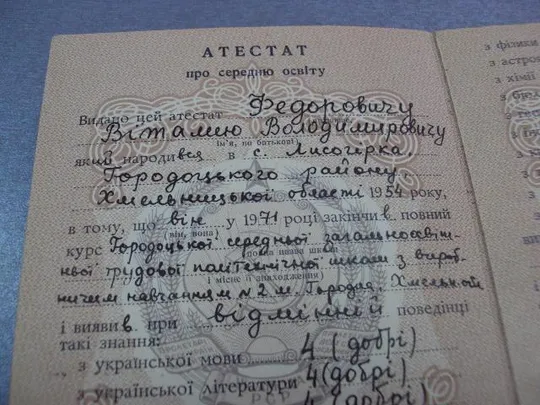 АТЕСТАТ
про середню освіту
Видано цей атестат Федоровичу
Віталию Володимировичу
(ім'я, по батькові)
який народився в с. Лисогірка
Городоцького району,
Хмельницької області 1954 року,
в тому, що він у 1971 році закінчив повний
(він, вона)
курс Городоцької середньої загальноосвіт-
(повна назва школи
ньої трудової політехнічної школи з вироб-
і місце її знаходження)
ничим навчанням №2 м. Городка, Хмельн. обл
і виявив при відмінній поведінці
такі знання:
з української мови 4 (добрі)
з української літератури 4 (добрі)
4 (добрі)
з фізики
з астро
з хімії